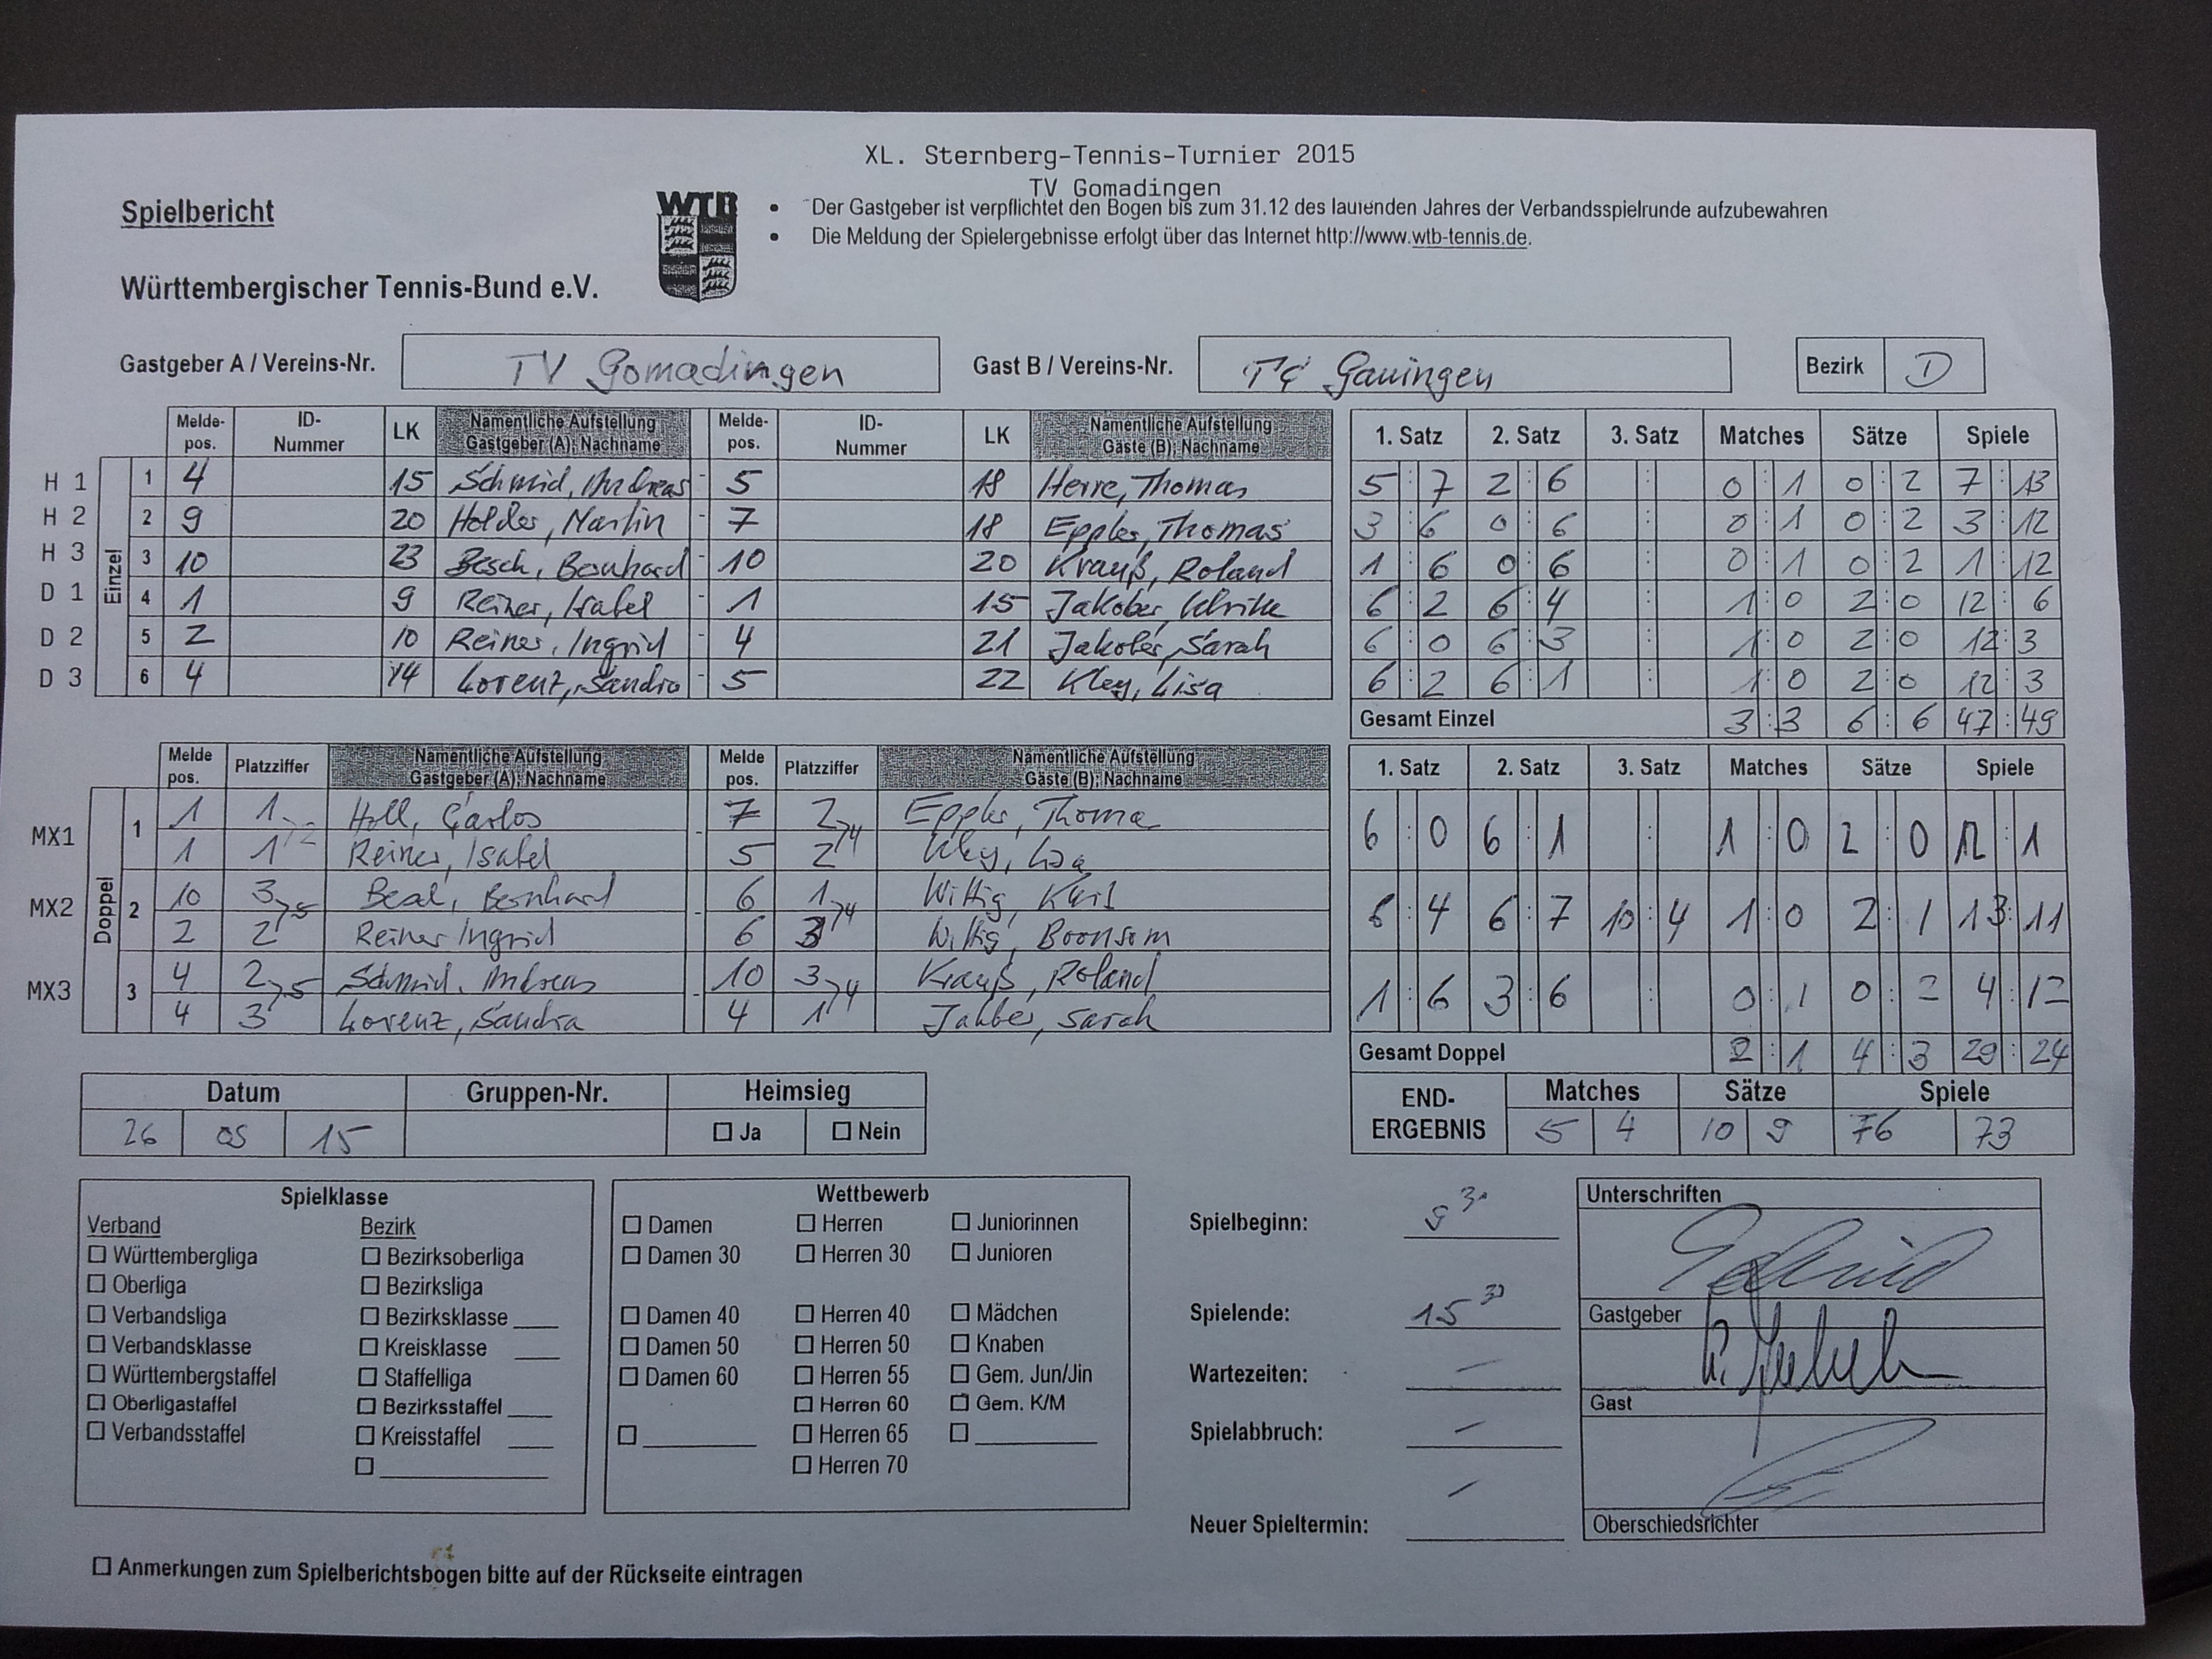 XL. Sternberg-Tennis-Turnier 2015
TV Gomadingen
Spielbericht
WTB
• Der Gastgeber ist verpflichtet den Bogen bis zum 31.12 des laufenden Jahres der Verbandsspielrunde aufzubewahren
• Die Meldung der Spielergebnisse erfolgt über das Internet http://www.wtb-tennis.de.
Württembergischer Tennis-Bund e.V.
Gastgeber A / Vereins-Nr. TV Gomadingen Gast B / Vereins-Nr. TC Gauingen Bezirk D
Melde-pos. ID-Nummer LK Namentliche Aufstellung Gastgeber (A); Nachname Melde-pos. ID-Nummer LK Namentliche Aufstellung Gäste (B); Nachname 1. Satz 2. Satz 3. Satz Matches Sätze Spiele
Einzel
H 1 1 4 15 Schmid, Andreas - 5 18 Herre, Thomas 5 : 7 2 : 6 : 0 : 1 0 : 2 7 : 13
H 2 2 9 20 Holder, Martin - 7 18 Eppler, Thomas 3 : 6 0 : 6 : 0 : 1 0 : 2 3 : 12
H 3 3 10 23 Besch, Bernhard - 10 20 Krauß, Roland 1 : 6 0 : 6 : 0 : 1 0 : 2 1 : 12
D 1 4 1 9 Reiner, Isabel - 1 15 Jakober, Ulrike 6 : 2 6 : 4 : 1 : 0 2 : 0 12 : 6
D 2 5 2 10 Reiner, Ingrid - 4 21 Jakober, Sarah 6 : 0 6 : 3 : 1 : 0 2 : 0 12 : 3
D 3 6 4 14 Lorenz, Sandra - 5 22 Kley, Lisa 6 : 2 6 : 1 : 1 : 0 2 : 0 12 : 3
Gesamt Einzel 3 : 3 6 : 6 47 : 49
Melde pos. Platzziffer Namentliche Aufstellung Gastgeber (A); Nachname Melde pos. Platzziffer Namentliche Aufstellung Gäste (B); Nachname 1. Satz 2. Satz 3. Satz Matches Sätze Spiele
Doppel
MX1 1 1 1 >2 Holl, Carlos - 7 2 >4 Eppler, Thoma 6 : 0 6 : 1 : 1 : 0 2 : 0 12 : 1
1 1 Reiner, Isabel 5 2 Kley, Lisa
MX2 2 10 3 >5 Bernhard - 6 1 >4 Wittig, 6 : 4 6 : 7 10 : 4 1 : 0 2 : 1 13 : 11
2 2 Reiner Ingrid 6 3 Wittig, Boonsom
MX3 3 4 2 >5 Schmid, Andreas - 10 3 >4 Krauß, Roland 1 : 6 3 : 6 : 0 : 1 0 : 2 4 : 12
4 3 Lorenz, Sandra 4 1 Sarah
Gesamt Doppel 2 : 1 4 : 3 29 : 24
Datum Gruppen-Nr. Heimsieg
26 05 15 ☐ Ja ☐ Nein
END-ERGEBNIS Matches Sätze Spiele
5 4 10 9 76 73
Spielklasse
Verband Bezirk
☐ Württembergliga ☐ Bezirksoberliga
☐ Oberliga ☐ Bezirksliga
☐ Verbandsliga ☐ Bezirksklasse ____
☐ Verbandsklasse ☐ Kreisklasse ____
☐ Württembergstaffel ☐ Staffelliga
☐ Oberligastaffel ☐ Bezirksstaffel ____
☐ Verbandsstaffel ☐ Kreisstaffel ____
☐ ____
Wettbewerb
☐ Damen ☐ Herren ☐ Juniorinnen
☐ Damen 30 ☐ Herren 30 ☐ Junioren
☐ Damen 40 ☐ Herren 40 ☐ Mädchen
☐ Damen 50 ☐ Herren 50 ☐ Knaben
☐ Damen 60 ☐ Herren 55 ☐ Gem. Jun/Jin
☐ Herren 60 ☐ Gem. K/M
☐ ____ ☐ Herren 65 ☐ ____
☐ Herren 70
Spielbeginn: 9 30
Spielende: 15 30
Wartezeiten: –
Spielabbruch: –
–
Neuer Spieltermin:
Unterschriften
Gastgeber
Gast
Oberschiedsrichter
☐ Anmerkungen zum Spielberichtsbogen bitte auf der Rückseite eintragen